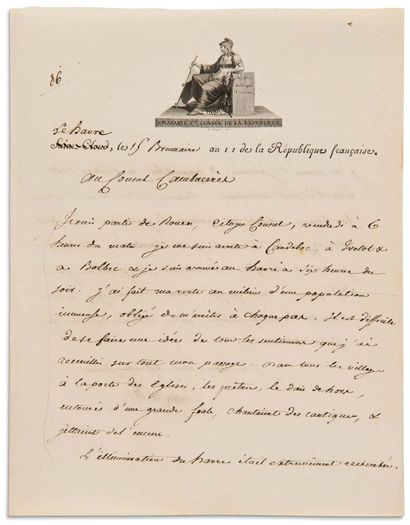 86
BONAPARTE 1er CONSUL DE LA REPUBLIQUE
Le havre
Saint-Cloud, le 15 Brumaire an 11 de la République française.
au Consul Cambacérès
Je suis partie de Rouen, Citoyen Consul, vendredi à 6
heures du matin je me suis arreté à Caudebec, à Ivetot &
à Bolbec & je suis arrivé au havre à six heures du
soir. J'ai fait ma route au milieu d'une population
immense, obligé de m'arrêter à chaque pas. Il est difficile
de se faire une idée de tous les sentiments que j'ai
recueillis sur tout mon passage. Dans tous les villages
à la porte des Eglises, les prêtres, le dais dehors,
entourés d'une grande foule, chantaient des cantiques, &
jettaient de l'encens.
L'illumination du havre était extrêmement recherchée.